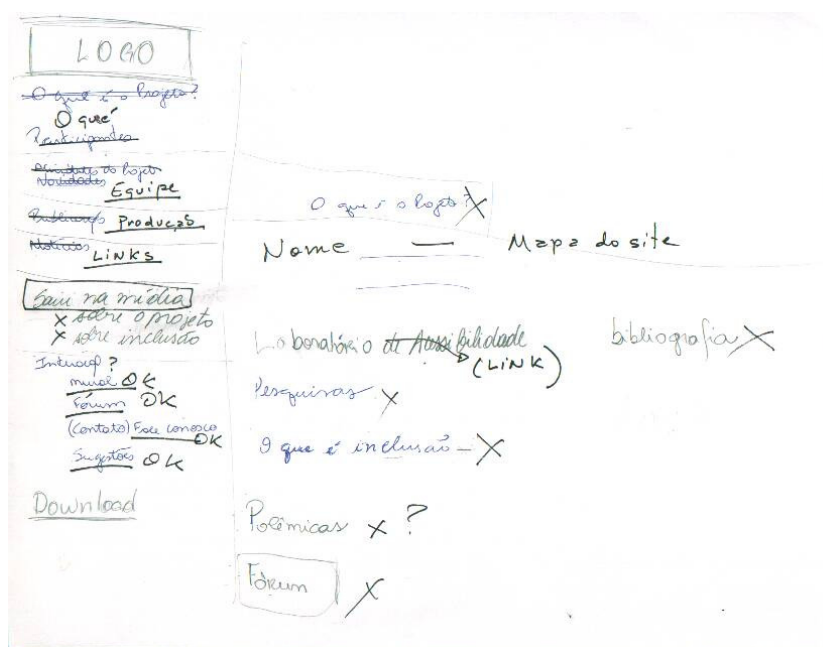 LOGO
O que é o Projeto?
O que é
Participantes
do Projeto
Novidades Equipe
Produção
Notícias LINKS
Saiu na mídia
x sobre o projeto
x sobre inclusão
?
mural OK
Fórum OK
(Contato) Fale conosco
OK
Sugestões OK
Download
O que é o Projeto? X
Nome — Mapa do site
Laboratório de Acessibilidade
(LINK)
bibliografia X
Pesquisas X
O que é inclusão - X
Polêmicas x ?
Fórum X